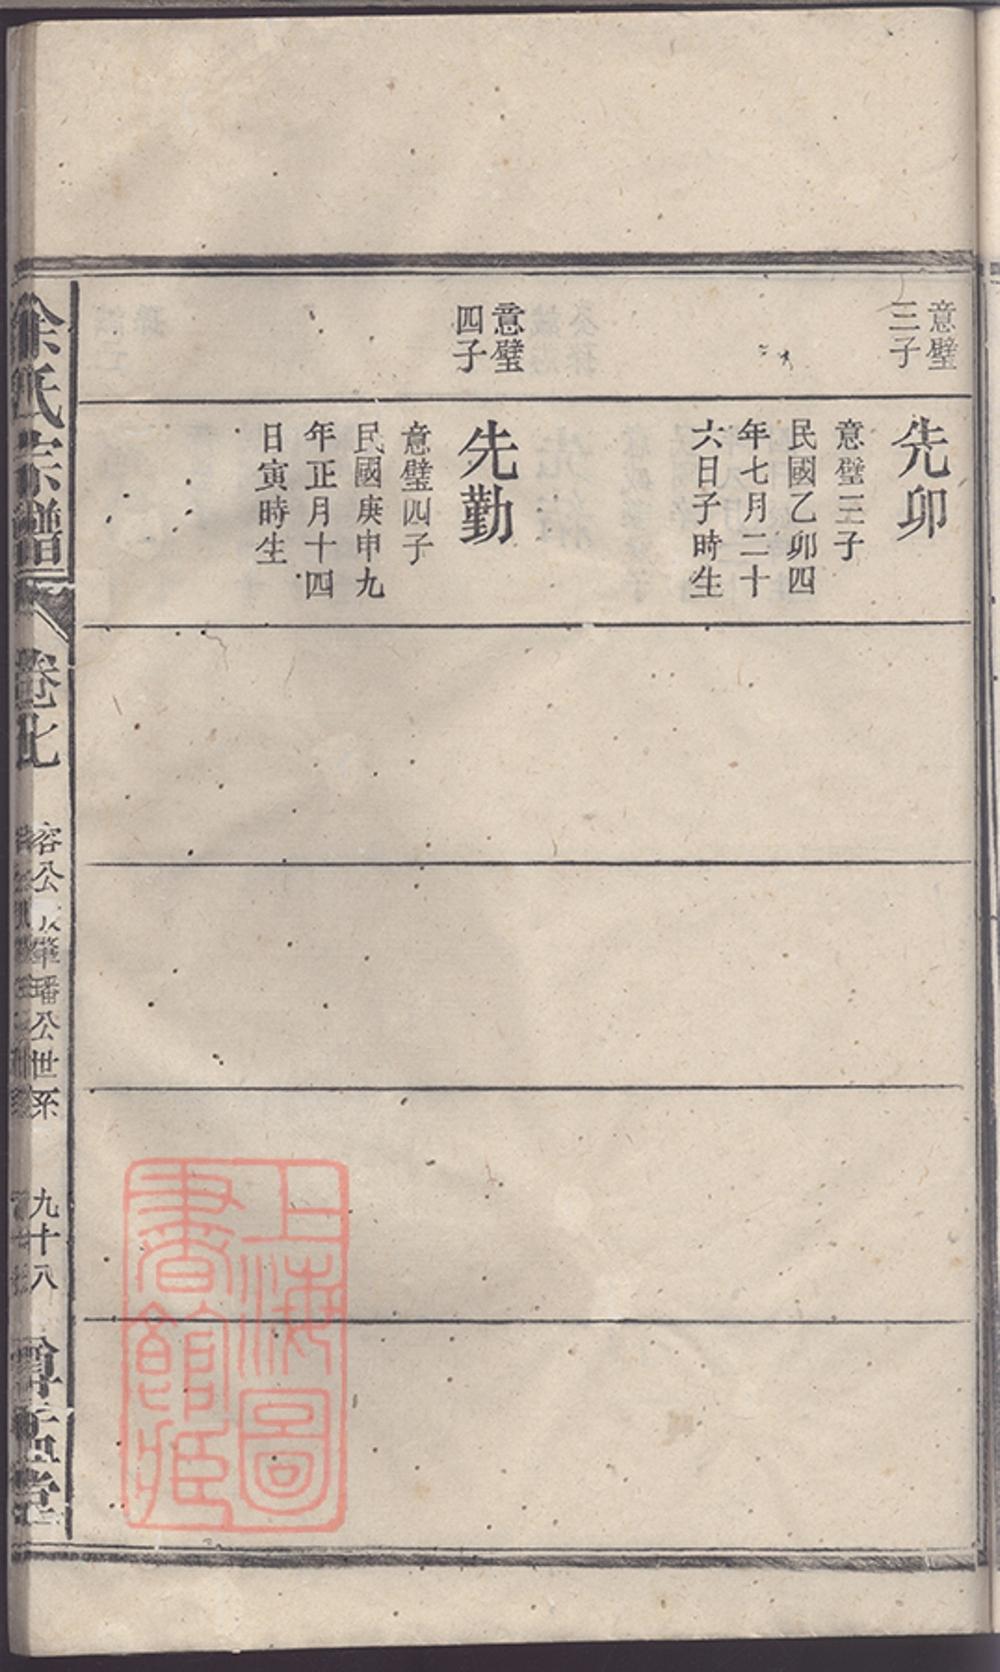 意璧
三子
先卯
意璧三子
民國乙卯四
年七月二十
六日子時生
意璧
四子
先勤
意璧四子
民國庚申九
年正月十四
日寅時生
余氏宗譜
卷七
容公 肇璠公世系
九十八
堂
上海圖
書館藏